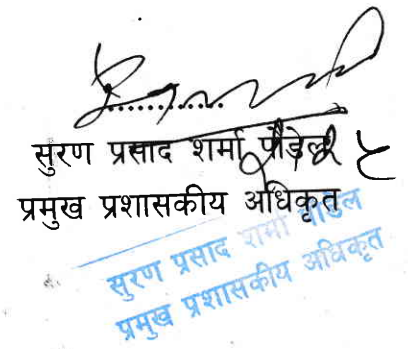 सुरण प्रसाद शर्मा पौडेल
प्रमुख प्रशासकीय अधिकृत
सुरण प्रसाद शर्मा पौडेल
प्रमुख प्रशासकीय अधिकृत